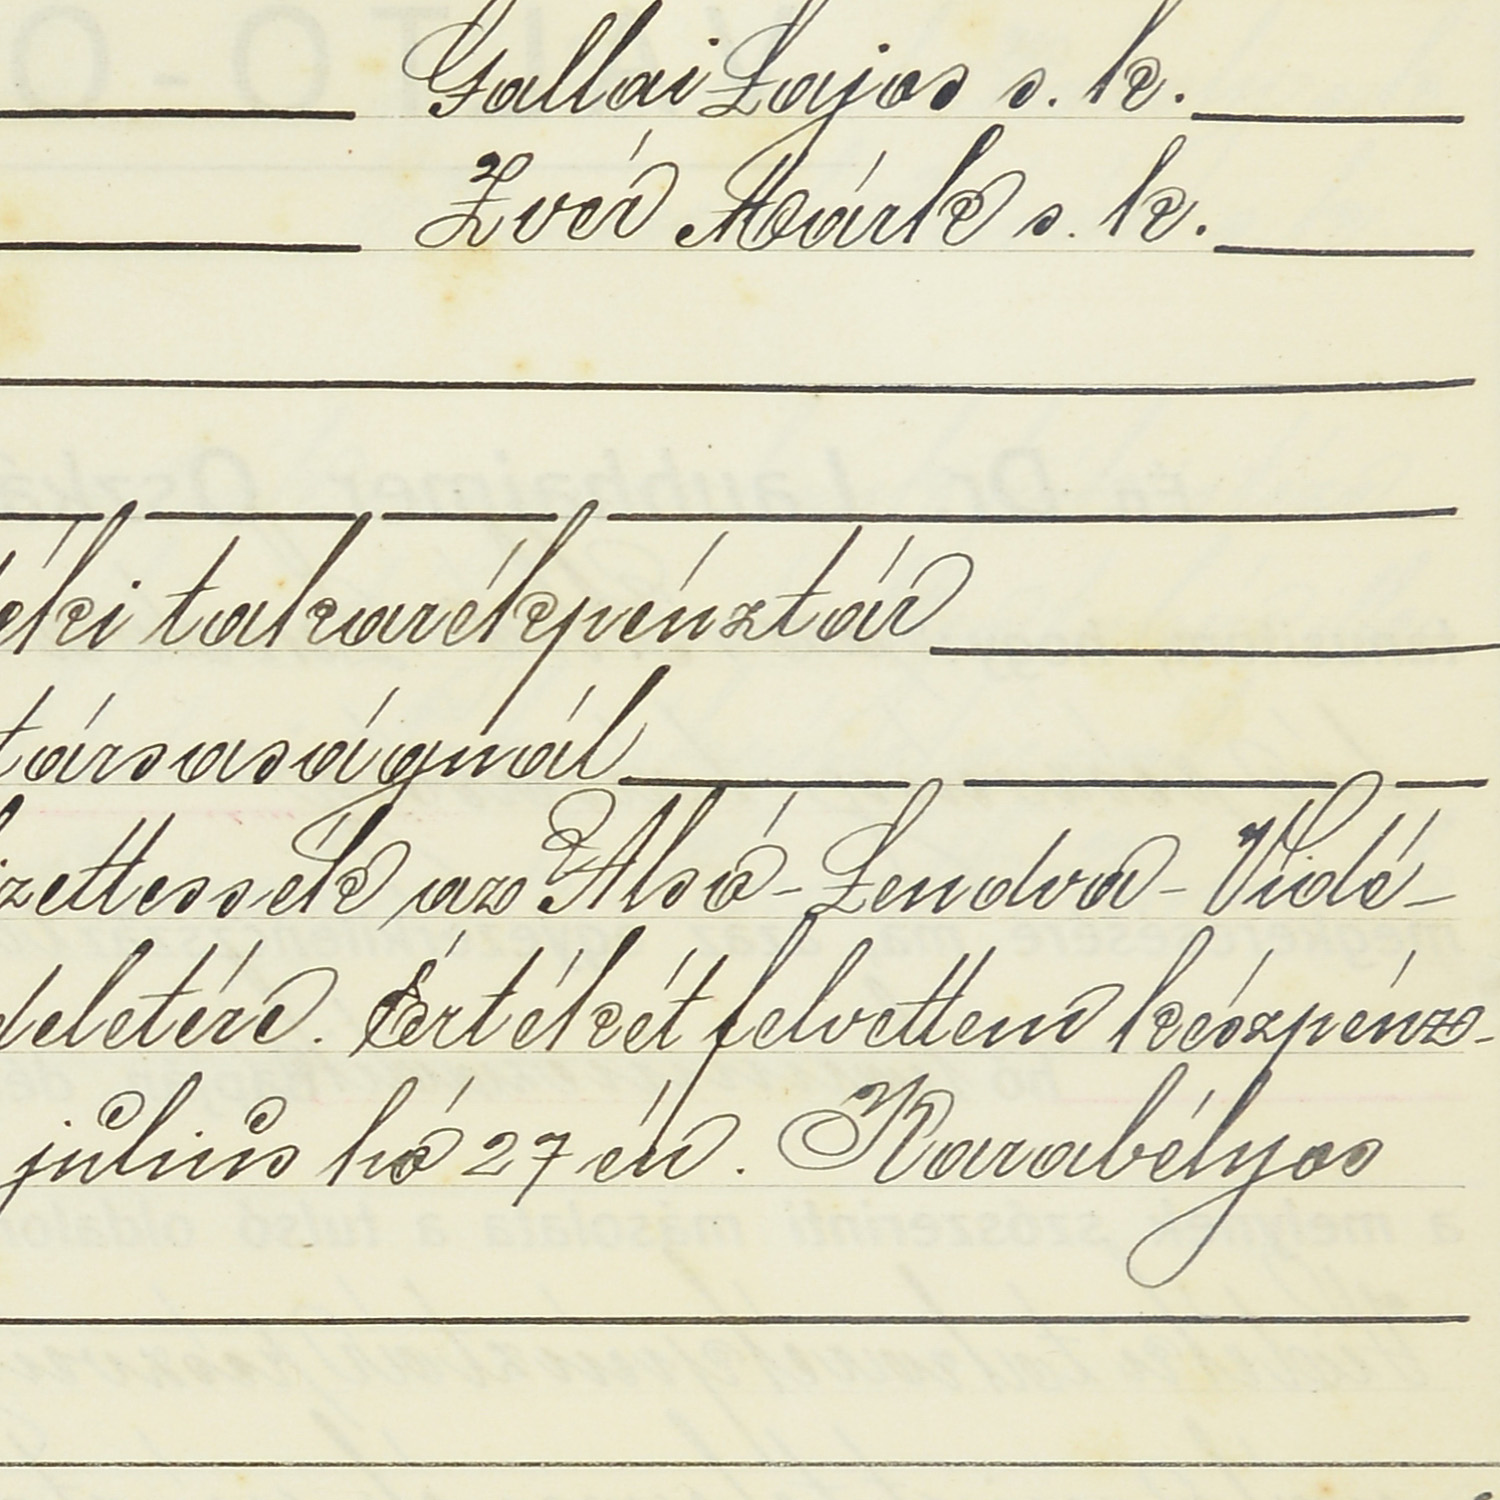 Gallai Lajos s. k.
Zvér Márk s. k.
éki takarékpénztár
társaságnál
izettessék az Alsó-Lendva-Vidé-
deletére. Értékét felvettem készpénz-
július hó 27 én. Karabélyos